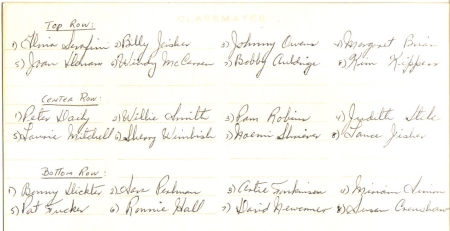 CLASSMATES
Top Row:
1) Elvia Serafini 2) Billy Jaisker 3) Johnny Owens 4) Margaret Brian
5) Joan 6) Windy McCarren 7) Bobby 8) Kim Kippers
Center Row:
1) Peter Daily 2) Willie Smith 3) Pam Robins 4) Judith
5) Laurie Mitchell 6) Sherry Wimbish 7) Naomi Shriever 8) Lance Fisher
Bottom Row:
1) Benny Slickter 2) Sara Perlman 3) Tomkinson 4) Miriam Simon
5) Pat Tucker 6) Ronnie Hall 7) David Newcomer 8) Susan Crenshaw